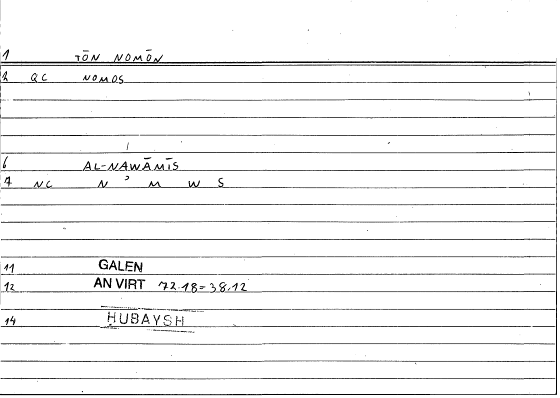 1 TŌN NOMŌN
2 QC NOMOS
6 AL-NAWĀMĪS
7 NC N ʾ M W S
11 GALEN
12 AN VIRT 72.18=38.12
14 HUBAYSH